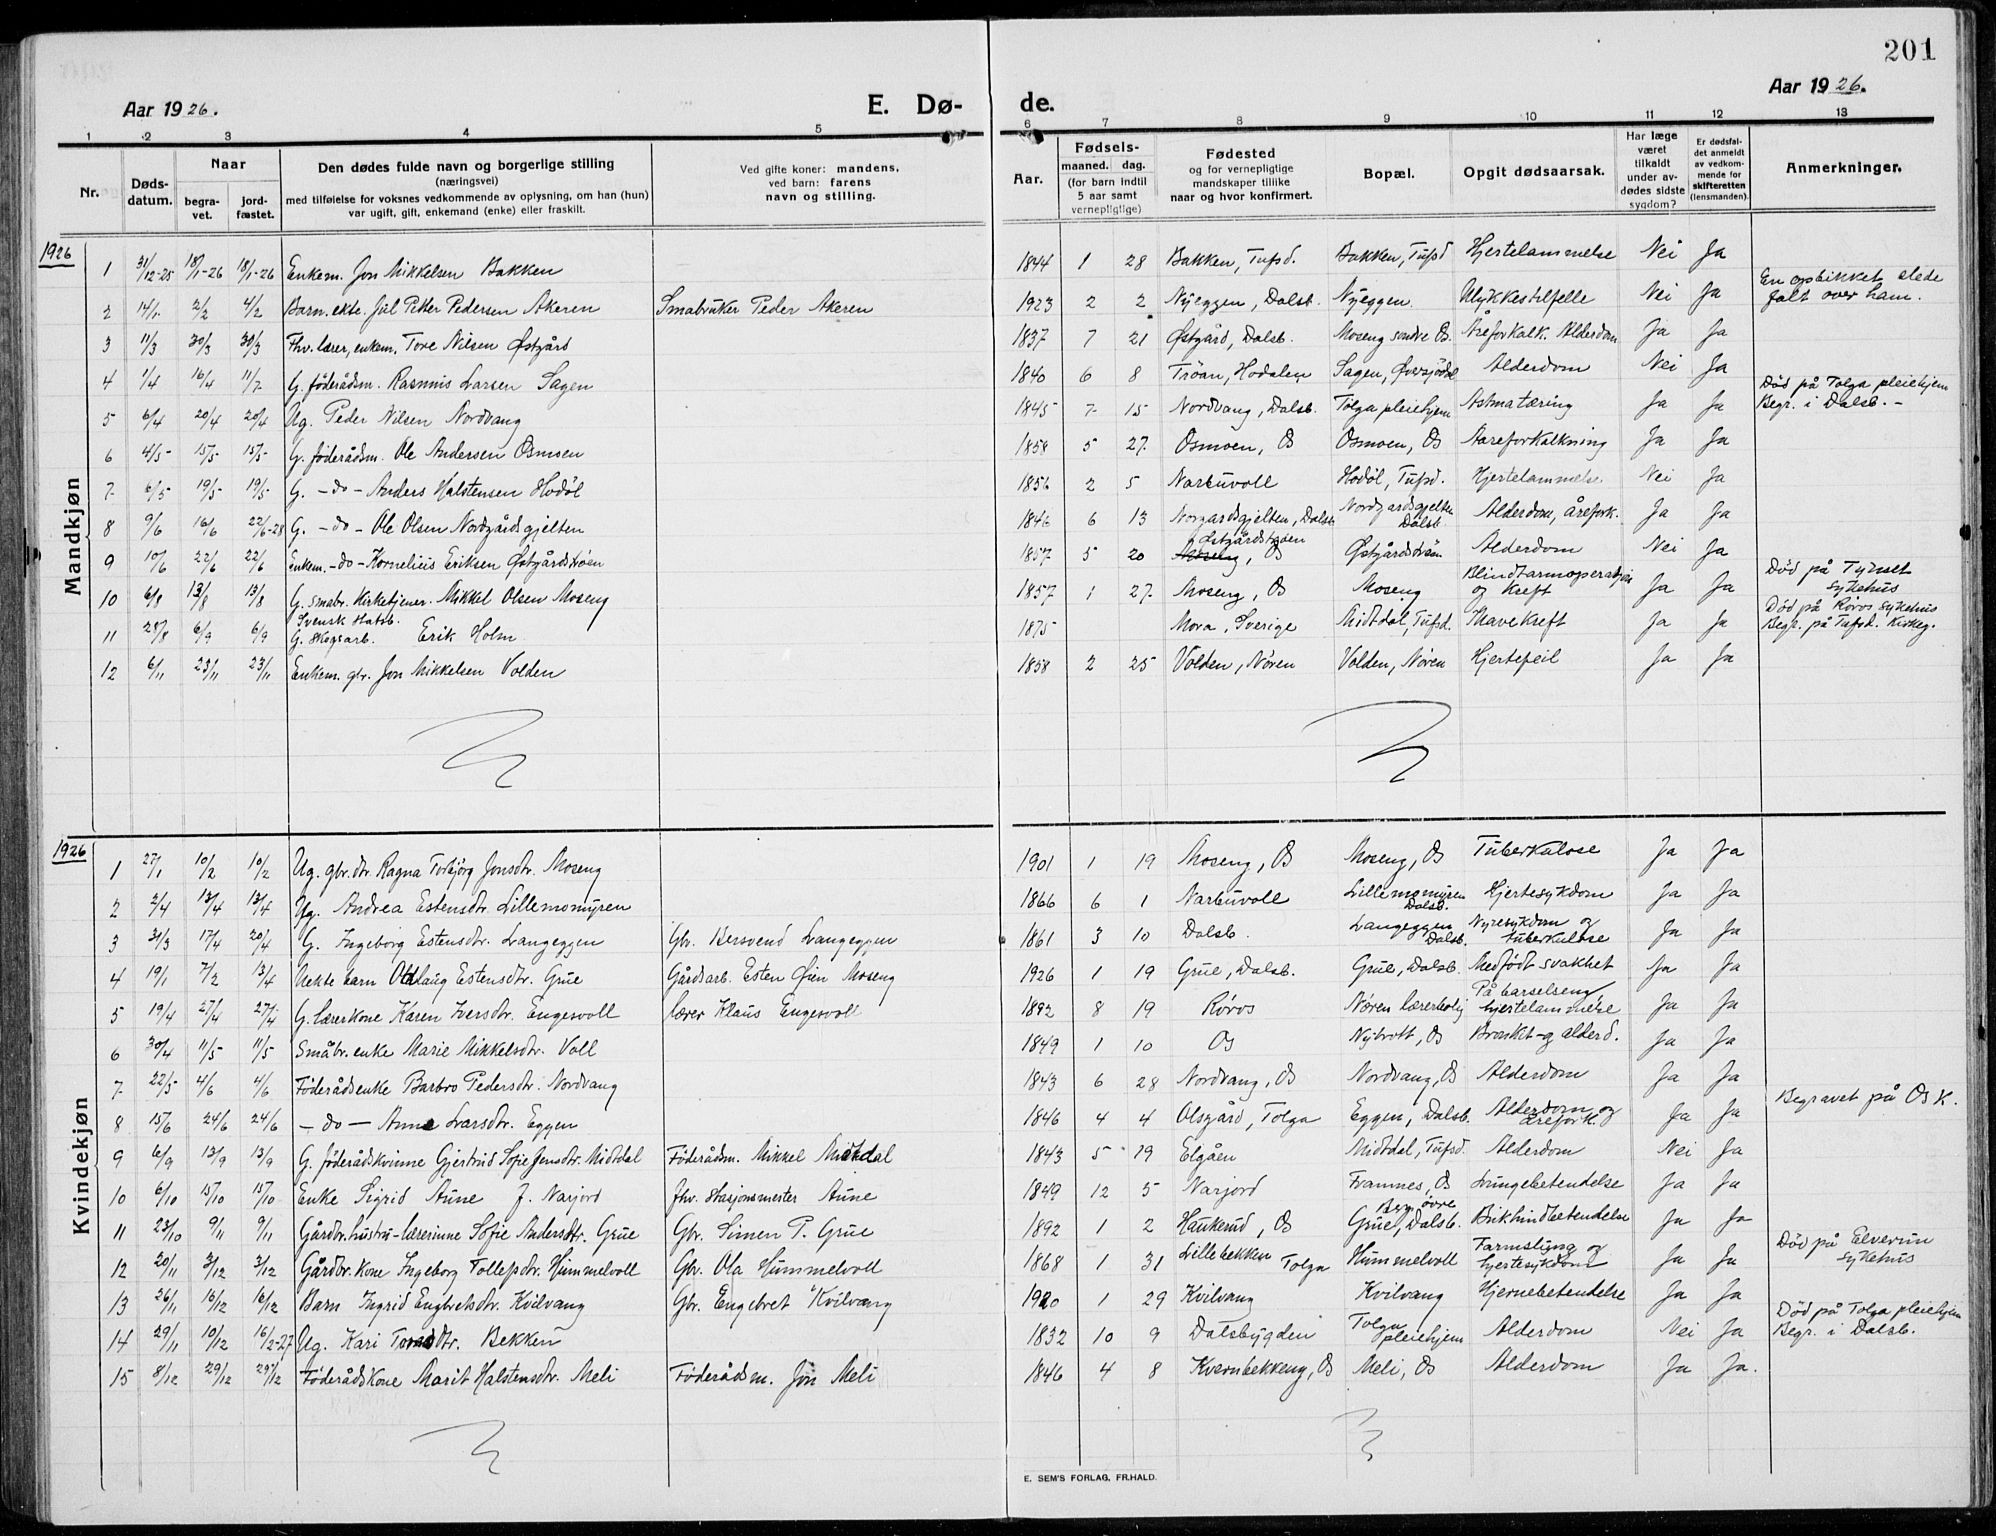 201
Aar 1926. E. Dø- de. Aar 1926.
1 2 3 4 5 6 7 8 9 10 11 12 13
Nr. Døds-datum. Naar begra-vet. jord-fæstet. Den dødes fulde navn og borgerlige stilling (næringsvei) med tilføielse for voksnes vedkommende av oplysning, om han (hun) var ugift, gift, enkemand (enke) eller fraskilt. Ved gifte koner: mandens, ved barn: farens navn og stilling. Aar. Fødsels- maaned. dag. (for barn indtil 5 aar samt vernepligtige) Fødested og for vernepligtige mandskaper tillike naar og hvor konfirmert. Bopæl. Opgit dødsaarsak. Har læge været tilkaldt under av-dødes sidste sygdom? Er dødsfal-det anmeldt av vedkom-mende for skifteretten (lensmanden). Anmerkninger.
Mandkjøn
1926
1 31/12-25 18/1-26 18/1-26 Enkem. Jon Mikkelsen Bakken 1844 1 28 Bakken, Tufsd. Bakken, Tufsd Hjertelammelse Nei Ja
2 14/1 2/2 4/2 Barn. ekte. Jul Petter Pedersen Akeren Smabruker Peder Akeren 1923 2 2 Nyeggen, Dalsb. Nyeggen. Ulykkestilfelle Nei Ja En opstikket slede falt over ham.
3 11/3 30/3 30/3 Fhv. lærer, enkem. Tore Nilsen Østgård 1837 7 21 Østgård, Dalsb. Moseng søndre Os. Åreforkalk. Alderdom Ja Ja
4 1/4 16/4 11/7 G. føderådsm. Rasmus Larsen Sagen 1840 6 8 Trøan, Hodalen Sagen, Øversjødal Alderdom Nei Ja
5 6/4 20/4 20/4 Ug. Peder Nilsen Nordvang 1845 7 15 Nordvang, Dalsb. Tolga pleiehjem Astma tæring Ja Ja Død på Tolga pleiehjem Begr. i Dalsb. -
6 4/5 15/5 15/5 G. føderådsm. Ole Andersen Osmoen 1858 5 27 Osmoen, Os Osmoen, Os Aareforkalkning Ja Ja
7 6/5 19/5 19/5 G. - do - Anders Halstensen Hodøl 1856 2 5 Narbuvoll Hodøl, Tufsd. Hjertelammels. Nei Ja
8 9/6 16/6 22/6-28 G. - do - Ole Olsen Nordgårdsgjelten 1846 6 13 Norgardsgjelten, Dalsb Nordgardsgjelten Dalsb. Alderdom, årefork. Ja Ja
9 10/6 22/6 22/6 Enkem. - do - Kornelius Eriksen Østgårdstrøen 1857 5 20 Østgårdstrøen Moseng, Os Østgårdstrøen Alderdom Nei Ja
10 6/8 13/8 13/8 G. smabr. Kirketjener. Mikkel Olsen Moseng 1857 1 27 Moseng, Os Moseng Blindtarmoperasjon og Kreft Ja Ja Død på Tynset sykehus
11 28/8 6/9 6/9 Svensk statsb. G. Skogsarb. Erik Holm 1875 Mora, Sverige Midtdal, Tufsd. Mavekreft Ja Ja Død på Røros sykehus Begr. på Tufsd. Kirkeg.
12 6/11 23/11 23/11 Enkem. gbr. Jon Mikkelsen Volden 1858 2 25 Volden, Nøren Volden, Nøren Hjertefeil Ja Ja
Kvindekjøn
1926
1 27/1 10/2 10/2 Ug. gbr. dtr. Ragna Torbjørg Jonsdtr. Moseng 1901 1 19 Moseng, Os Moseng, Os Tuberkulose Ja Ja
2 2/4 13/4 13/4 Ug. Andrea Estensdtr. Lillemomyren 1866 6 1 Narbuvoll Lillemomyren Dalsb. Hjertesykdom Ja Ja
3 31/3 17/4 20/4 G. Ingeborg Estensdtr. Langeggen Gbr. Bersvend Langeggen 1861 3 10 Dalsb. Langeggen Dalsb. Nyresykdom og tuberkulose Ja Ja
4 19/1 7/2 13/4 Uekte barn Oddlaug Estensdtr. Grue Gårdsarb. Esten Øien Moseng 1926 1 19 Grue, Dalsb. Grue, Dalsb. Medfødt svakhet Ja Ja
5 19/4 27/4 27/4 G. lærerkone Karen Iversdtr. Engesvoll lærer Klaus Engesvoll 1892 8 19 Røros Nøren lærerbolig På barselseng hjertelammelse Ja Ja
6 30/4 11/5 11/5 Småbr. enke Marie Mikkelsdtr. Voll 1849 1 10 Os Nybrott, Os Bronkit- og alderd. Ja Ja
7 22/5 4/6 4/6 Føderådsenke Barbro Pedersdtr. Nordvang 1843 6 28 Nordvang, Os Nordvang, Os Alderdom Ja Ja
8 15/6 24/6 24/6 - do - Anne Larsdtr. Eggen 1846 4 4 Olsgård, Tolga Eggen, Dalsb. Alderdom og årefork. Ja Ja Begravet på Os K.
9 6/9 13/9 13/9 G. føderådskvinne Gjertrud Sofie Jensdtr. Midtdal Føderådsm. Mikkel Midtdal 1843 5 19 Elgåen Midtdal, Tufsd. Alderdom Nei Ja
10 6/10 15/10 15/10 Enke Sigrid Aune f. Narjord fhv. stasjonsmester Aune 1849 12 5 Narjord Framnes, Os Lungebetendelse Ja Ja
11 23/10 9/11 9/11 Gårdbr. hustru - lærerinne Sofie Andersdtr. Grue Gbr. Simen P. Grue 1892 1 2 Haukerud, Os Grue, øvre Dalsb. Bukhindbetendelse Ja Ja
12 20/11 3/12 3/12 Gårdbr. kone Ingeborg Tollefsdtr. Hummelvoll Gbr. Ola Hummelvoll 1868 1 31 Lillebekken Tolga Hummelvoll Tarmslyng og hjertesykdom Ja Ja Død på Elverum sykehus
13 26/11 16/12 16/12 Barn Ingrid Engbretsdtr. Kvilvang Gbr. Engebret Kvilvang 1920 1 29 Kvilvang Kvilvang Hjernebetendelse Ja Ja
14 29/11 10/12 16/2-27 Ug. Kari Bekken 1832 10 9 Dalsbygden Tolga pleiehjem Alderdom Nei Ja Død på Tolga pleiehjem Begr. i Dalsb.
15 8/12 29/12 29/12 Føderådskone Marit Halstensdtr. Meli Føderådsm. Jon Meli 1846 4 8 Kvernbekkeng, Os Meli, Os Alderdom Ja Ja.
E. SEM'S FORLAG, FR.HALD.